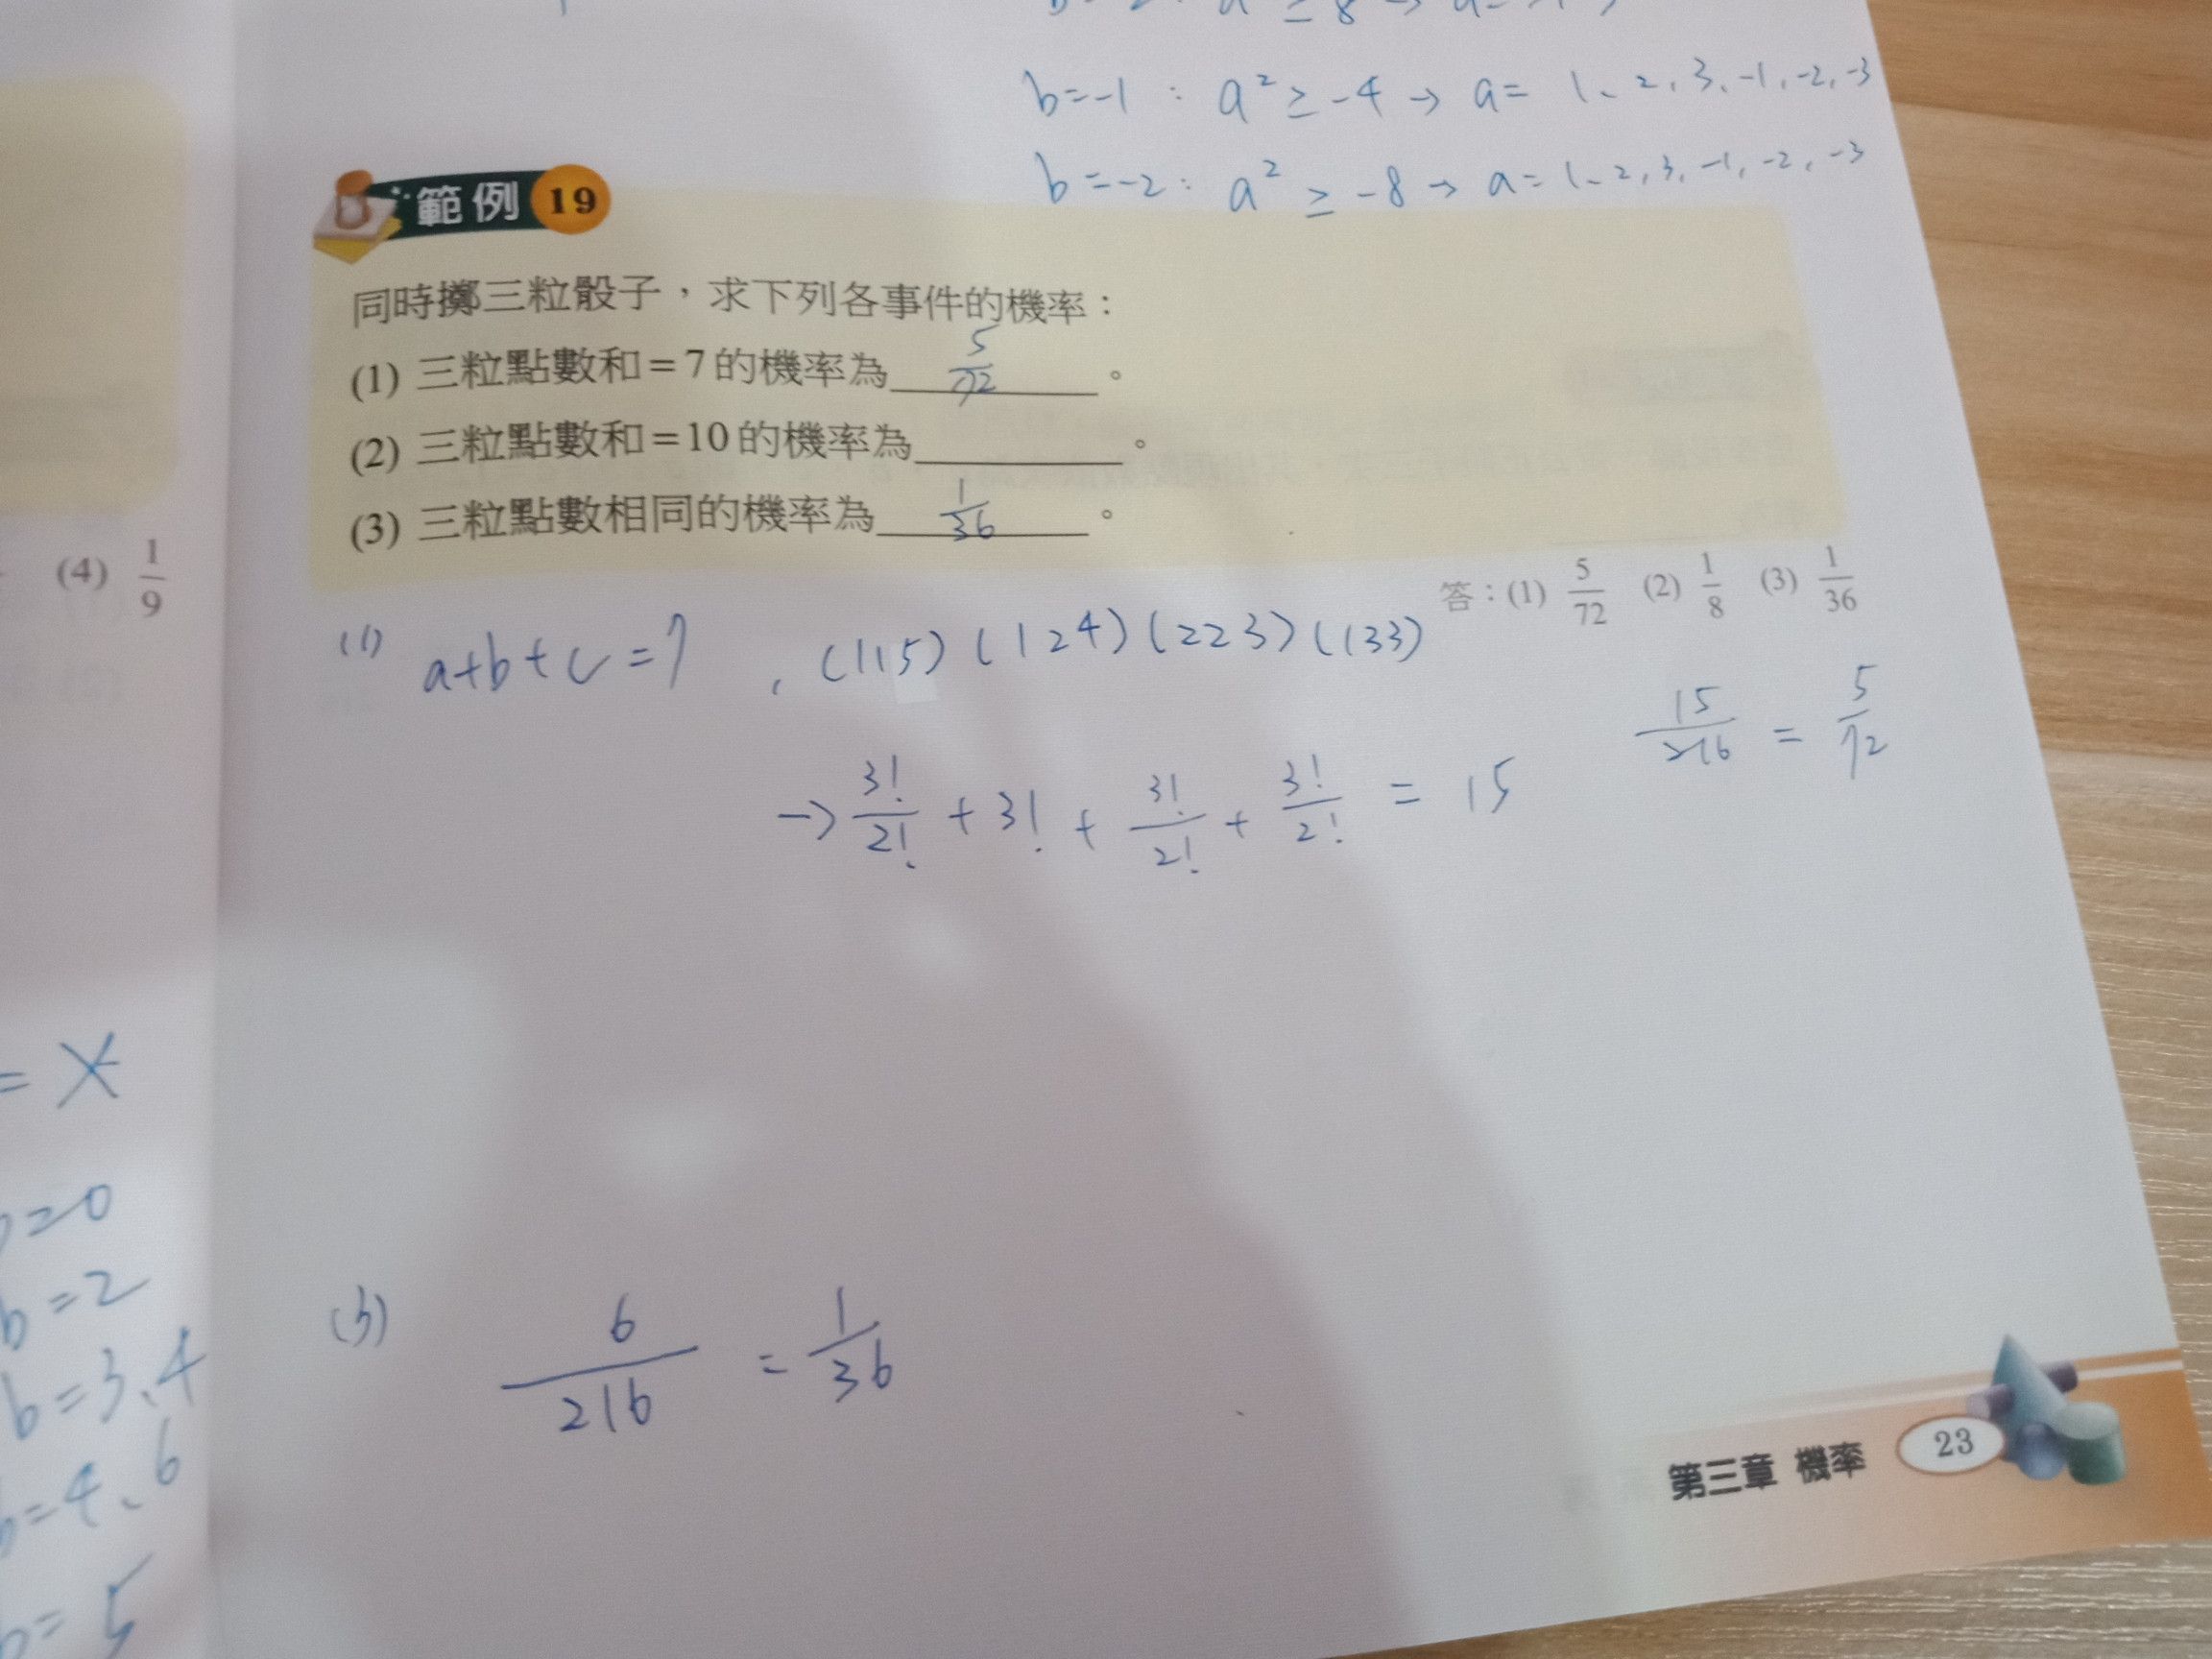 b=-1 : a² ≥ -4 → a= 1、2, 3、-1, -2, -3
b=-2 : a² ≥ -8 → a= 1、2, 3, -1, -2, -3
範例 19
同時擲三粒骰子，求下列各事件的機率：
(1) 三粒點數和=7的機率為 5/72 。
(2) 三粒點數和=10的機率為 。
(3) 三粒點數相同的機率為 1/36 。
答：(1) 5/72 (2) 1/8 (3) 1/36
(4) 1/9
(1) a+b+c=7 , (115) (124) (223) (133)
→ 3!/2! + 3! + 3!/2! + 3!/2! = 15
15/216 = 5/72
(3) 6/216 = 1/36
= X
b=2
b=3、4
b=4、6
b=5
第三章 機率 23